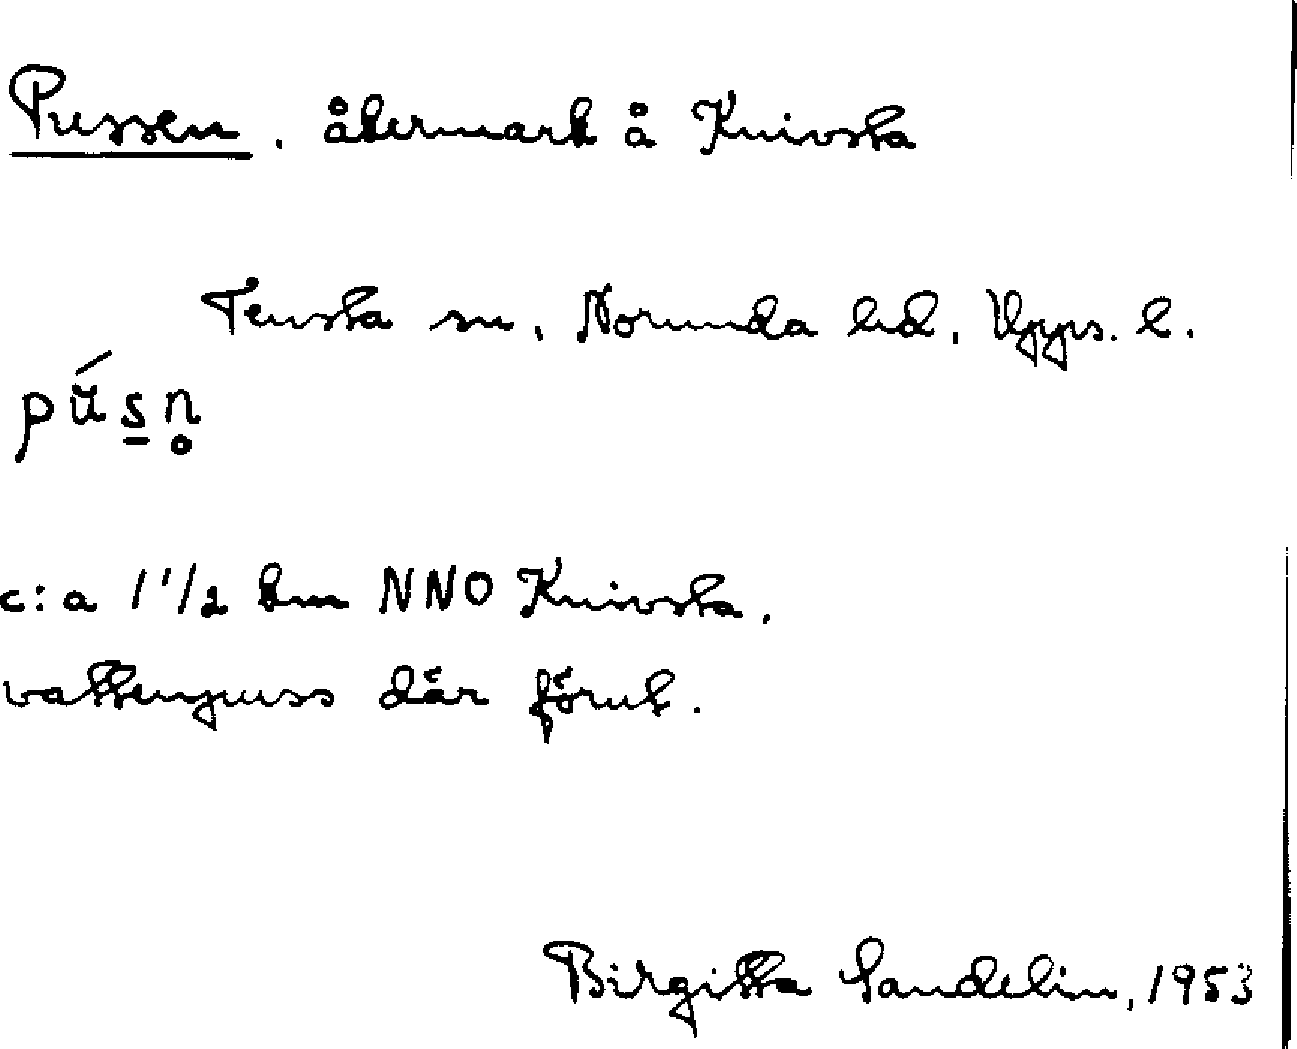 Pussen, åkermark å Knivsta
Tensta sn, Norunda hd, Upps. l.
pŭ́s̲n̥
c:a 1 1/2 km NNO Knivsta.
vattenpuss där förut.
Birgitta Sandelin, 1953